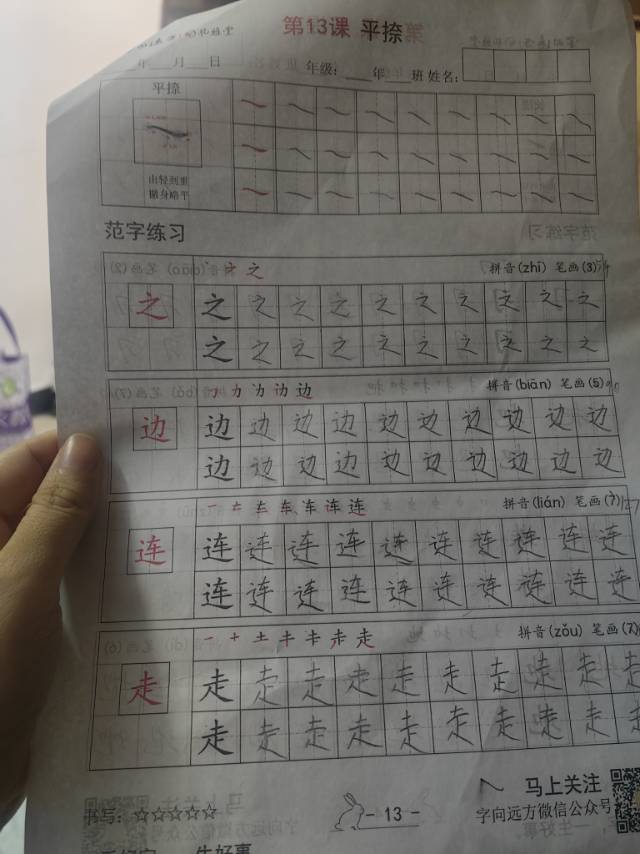 第13课 平捺
年 月 日 年级: 年 班 姓名:
平捺
由轻到重
随身略平
范字练习
之 拼音(zhī) 笔画(3)
之 之 之 之 之 之 之 之 之 之 之
之 之 之 之 之 之 之 之 之 之
边 拼音(biān) 笔画(5)
边 边 边 边 边 边 边 边 边 边 边
边 边 边 边 边 边 边 边 边 边
连 拼音(lián) 笔画(7)
连 连 连 连 连 连 连 连 连 连 连
连 连 连 连 连 连 连 连 连 连
走 拼音(zǒu) 笔画(7)
走 走 走 走 走 走 走 走 走 走 走
走 走 走 走 走 走 走 走 走 走
马上关注
书写: ☆☆☆☆☆ - 13 - 字向远方微信公众号